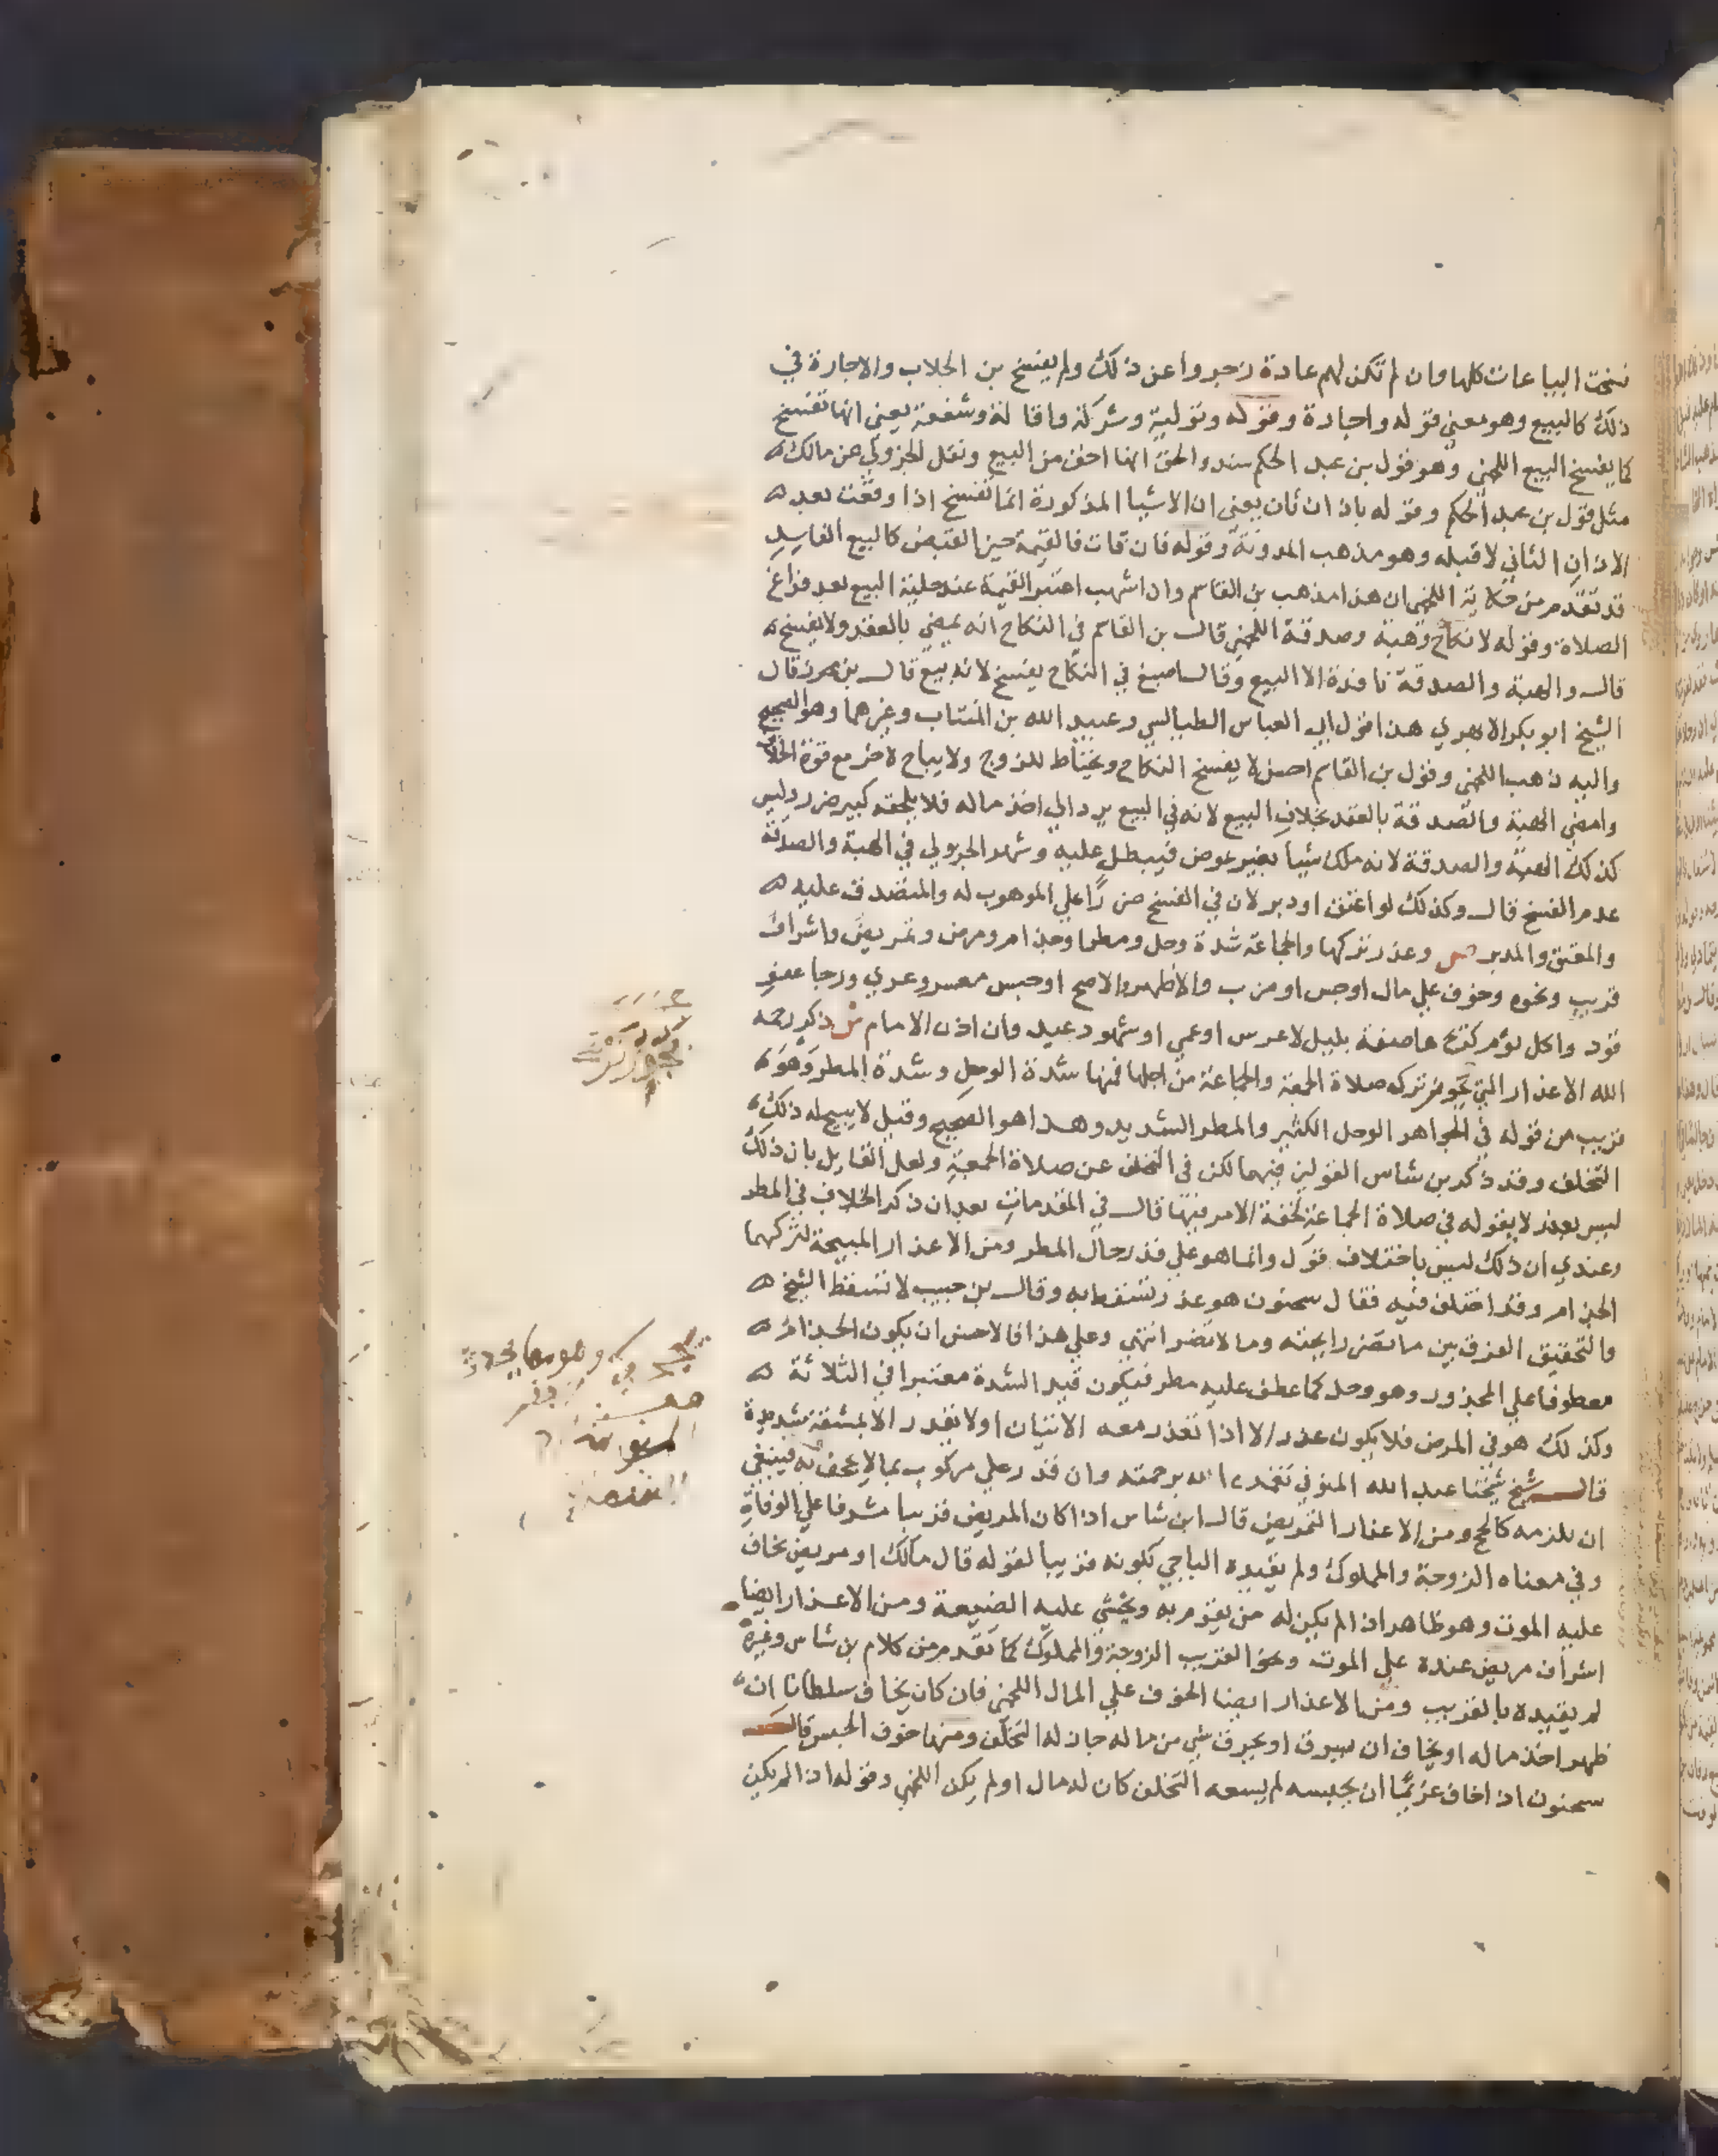 نسخت البياعات كلها وان لم تكن لهم عادة زجروا عن ذلك ولم يفسخ بن الجلاب والاجارة في
ذلك كالبيع وهو معنى قوله واجارة وقوله وتولية وشركة واقالة وشفعة يعني انها تفسخ
كما يفسخ البيع اللخمي وهو قول بن عبد الحكم سند والحق انها اخف من البيع ونقل الجزولي عن مالك
مثل قول بن عبد الحكم وقوله باذان ثان يعني ان الاشيا المذكورة انما تفسخ اذا وقعت بعد
الاذان الثاني لا قبله وهو مذهب المدونة وقوله فان فات فالقيمة حين القبض كالبيع الفاسد
قد تقدم من حكاية اللخمي ان هذا مذهب بن القاسم وان اشهب اعتبر القيمة عند حلية البيع بعد فراغ
الصلاة وقوله لا نكاح وهبة وصدقة اللخمي قال بن القاسم في النكاح انه يمضي بالعقد ولا يفسخ
قال والهبة والصدقة نافذة الا البيع وقال اصبغ في النكاح يفسخ لانه بيع قال بن محرز قال
الشيخ ابو بكر الابهري هذا قول ابي العباس الطيالسي وعبيد الله بن المنتاب وغيرهما وهو الصحيح
واليه ذهب اللخمي وقول بن القاسم احسن لا يفسخ النكاح ويحتاط للزوج ولا يباح لاخر مع قوة الخلاف
وامضي الهبة والصدقة بالعقد بخلاف البيع لانه في البيع يرد الي اخذ ماله فلا يلحقه كبير ضرر وليس
كذلك الهبة والصدقة لانه ملك شيا بغير عوض فيبطل عليه وشهر الجزولي في الهبة والصدقة
عدم الفسخ قال وكذلك لو اعتق او دبر لان في الفسخ ضررا علي الموهوب له والمتصدق عليه
والمعتق والمدبر ص وعذر تركها والجماعة شدة وحل ومطر او جذام ومرض وتمريض واشراف
قريب ونحوه وخوف علي مال او حبس او ضرب والاظهر والاصح او حبس معسر وعري ورجا عفو
قود واكل ثوم كريح عاصفة بليل لا عرس او عمي او شهود عيد وان اذن الامام ش ذكر رحمه
الله الاعذار التي يجوز ترك صلاة الجمعة والجماعة من اجلها فمنها شدة الوحل وشدة المطر وهو
قريب من قوله في الجواهر الوحل الكثير والمطر الشديد وهذا هو الصحيح وقيل لا يبيح له ذلك
التخلف وقد ذكر بن شاس القولين فيهما لكن في التخلف عن صلاة الجمعة ولعل القايل بان ذلك
ليس بعذر لا يقوله في صلاة الجماعة لخفة الامر فيها قال في المقدمات بعد ان ذكر الخلاف في المطر
وعندي ان ذلك ليس باختلاف قول وانما هو علي قدر حال المطر ومن الاعذار المبيحة لتركهما
الجذام وقد اختلف فيه فقال سحنون هو عذر تسقط به وقال بن حبيب لا تسقط الشيخ
والتحقيق الفرق بين ما تضر رايحته وما لا تضر انتهي وعلي هذا فالاحسن ان يكون الجذام
معطوفا علي المجذور وهو وحل كما عطف عليه مطر فيكون قيد الشدة معتبرا في الثلاثة
وكذلك هو في المرض فلا يكون عذرا الا اذا تعذر معه الاتيان او لا تعذر الا بمشقة شديدة
قال شيخ شيخنا عبد الله المنوفي تغمده الله برحمته وان قدر علي مركوب بما لا يجحف به فينبغي
ان يلزمه كالحج ومن الاعذار التمريض قال ابن شاس اذا كان المريض قريبا مشرفا علي الوفاة
وفي معناه الزوجة والمملوك ولم يقيده الباجي بكونه قريبا لقوله قال مالك او مريض يخاف
عليه الموت وهو ظاهر اذا لم يكن له من يقوم به ويخشي عليه الضيعة ومن الاعذار ايضا
اشراف مريض عنده علي الموت ونحو القريب الزوجة والمملوك كما تقدم من كلام بن شاس وغيره
لم يقيده بالقريب ومن الاعذار ايضا الخوف علي المال اللخمي فان كان يخاف سلطانا ان
ظهر اخذ ماله او يخاف ان يسرق او يحرق شي من ماله جاز له التخلف ومنها خوف الحبس قال
سحنون اذا خاف غريما ان يحبسه لم يسعه التخلف كان له مال او لم يكن اللخمي وقوله اذا لم يكن